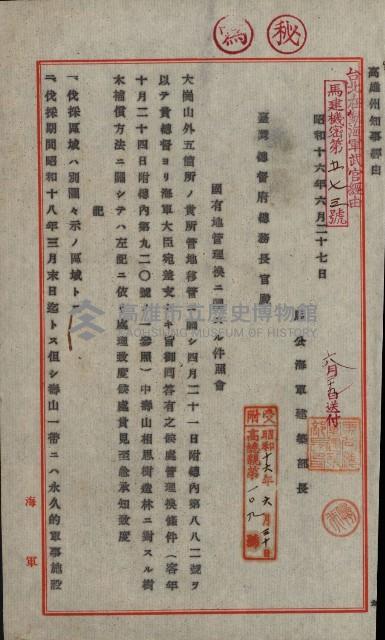 秘
高雄州知事經由
台北在勤海軍武官經由
馬建機密第五七三號
昭和十六年六月二十七日
馬公海軍建築部長
臺灣總督府總務長官殿
國有地管理換ニ關スル件照會
大崗山外五箇所ノ貴所管地移管ニ關シ四月二十一日附總內第八八二號ヲ
以テ貴總督ヨリ海軍大臣宛差支ナキ旨御回答有之候處管理換條件(客年
十月二十四日附總內第九二〇號參照)中壽山相思樹造林ニ對スル樹
木補償方法ニ關シテハ左記ニ依リ處理致度候處貴見至急承知致度
記
一、伐採區域ハ別圖々示ノ區域トス
一、伐採期間昭和十八年三月末日迄トス但シ壽山一帶ニハ永久的軍事施設
海軍
六月三十日送付
受附
昭和十六年六月三十日
高雄市立歷史博物館
KAOHSIUNG MUSEUM OF HISTORY